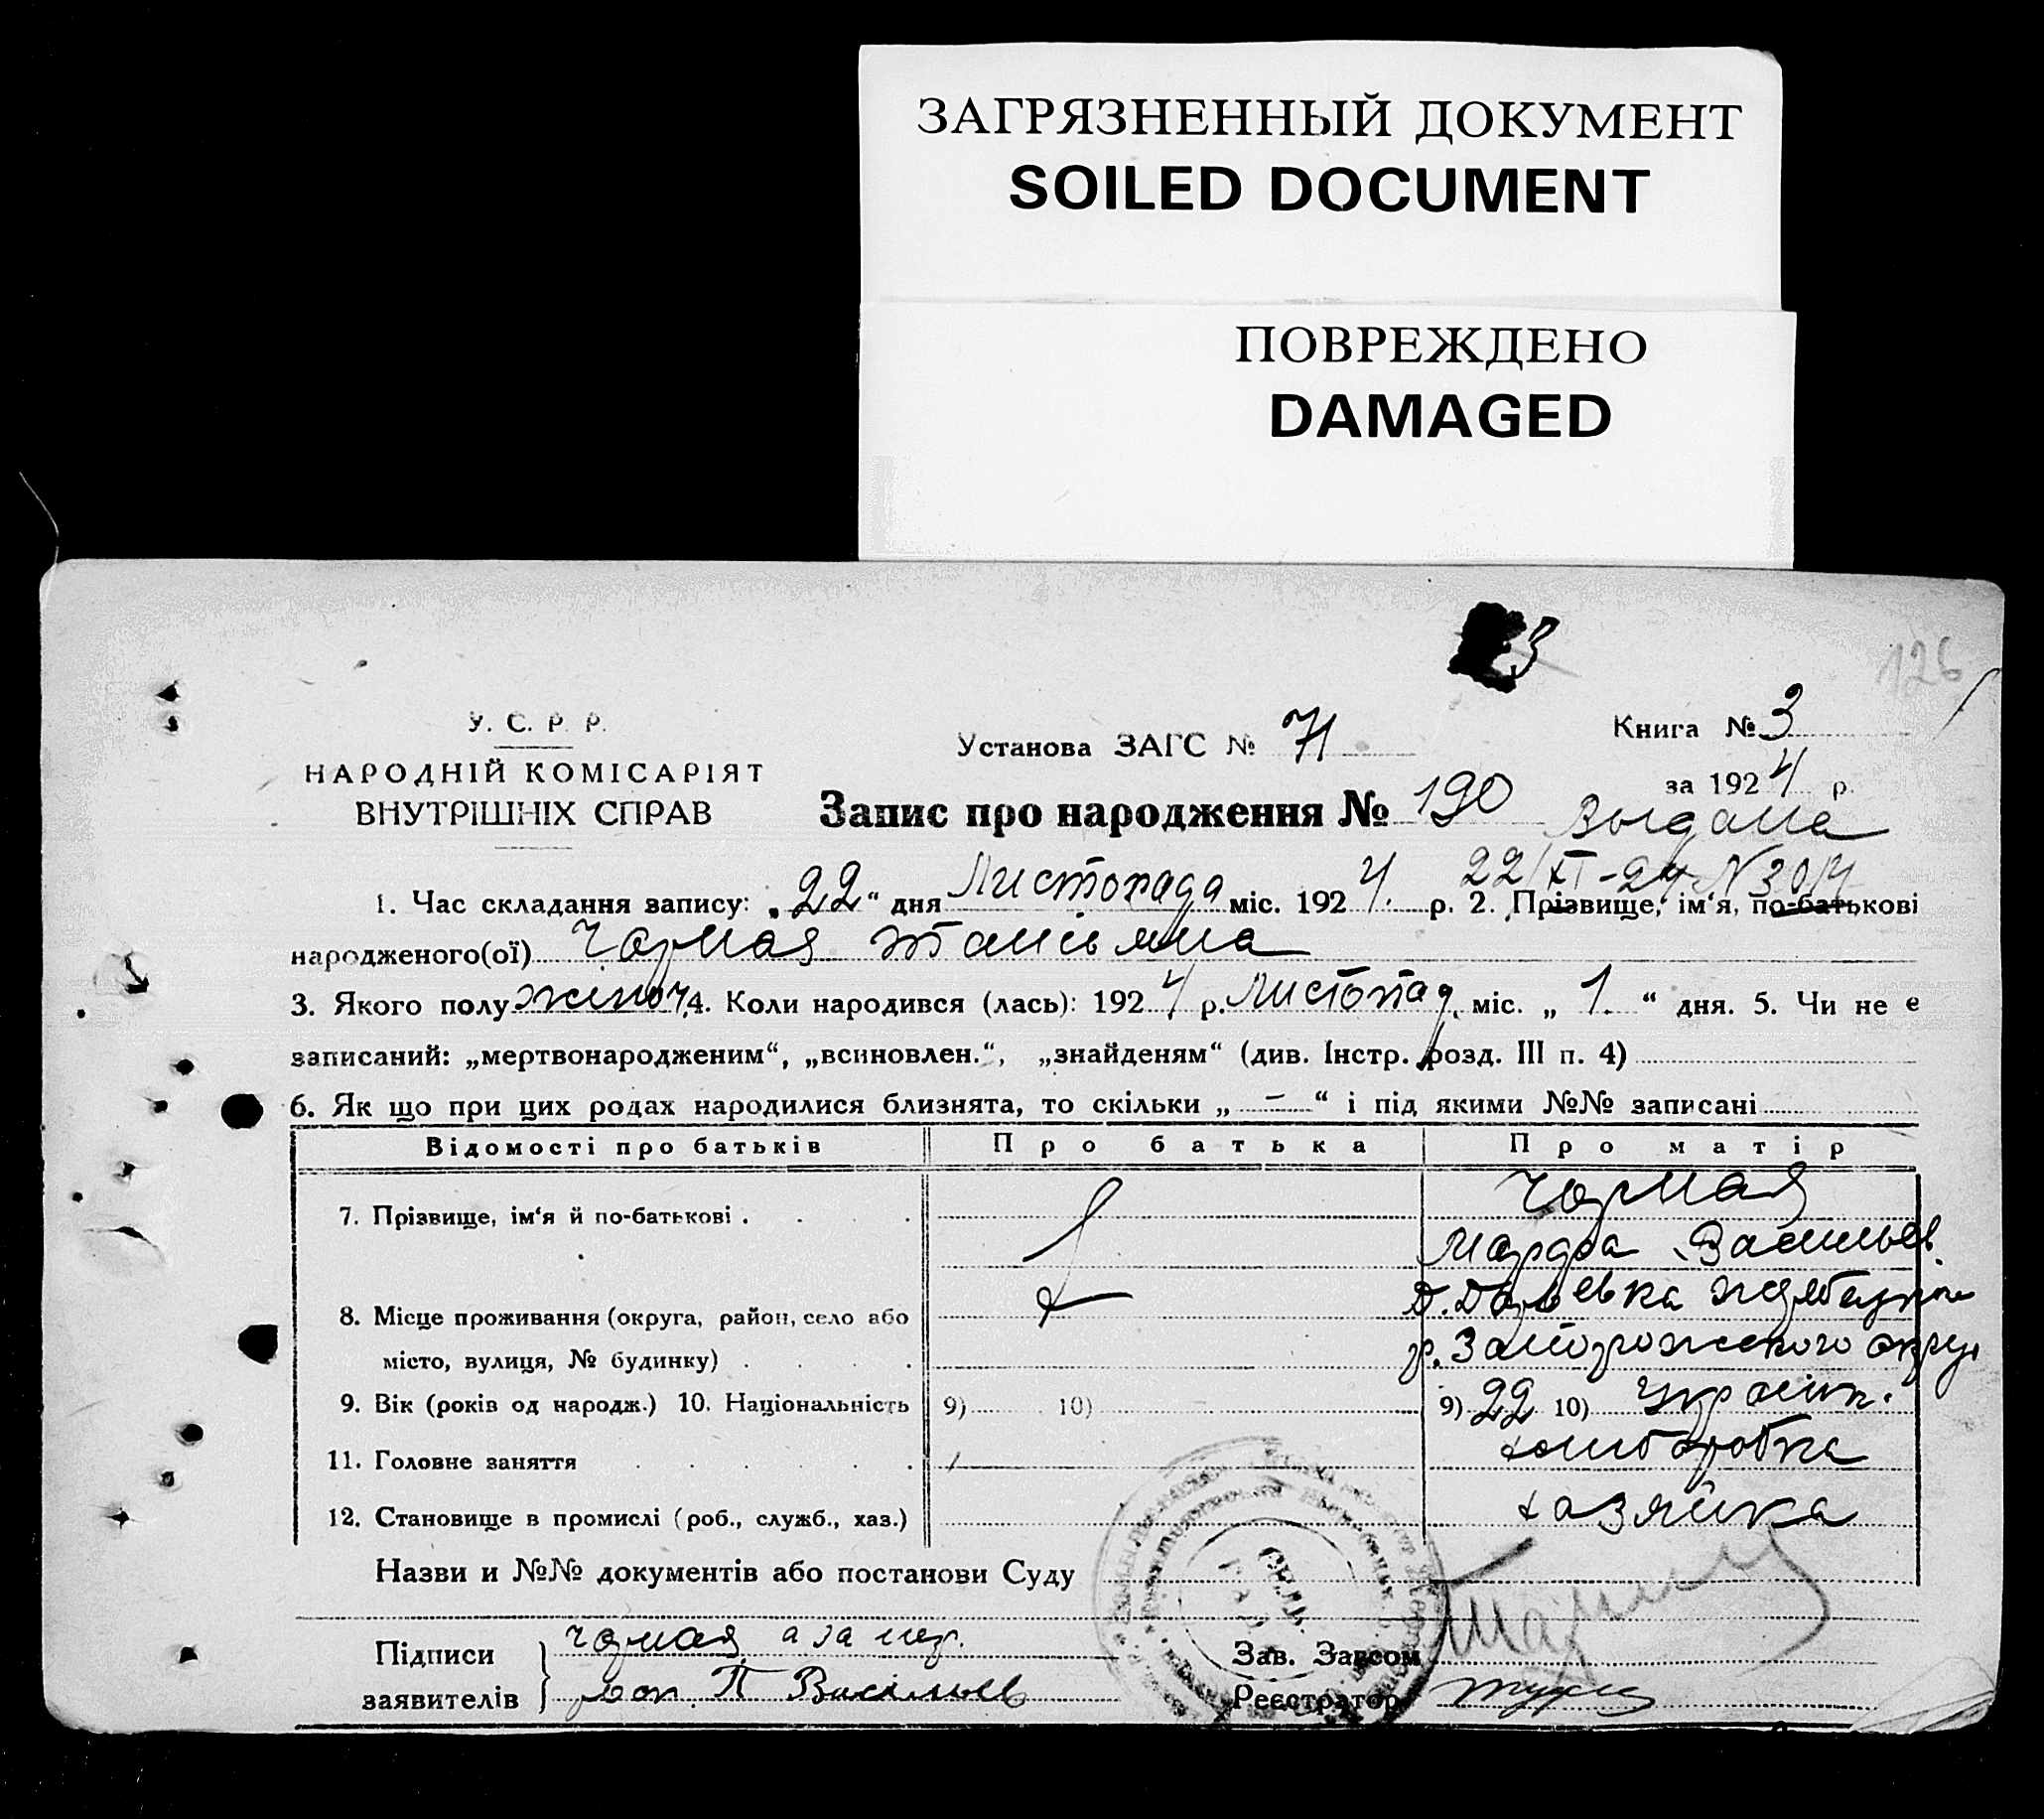 ЗАГРЯЗНЕННЫЙ ДОКУМЕНТ
SOILED DOCUMENT
ПОВРЕЖДЕНО
DAMAGED
3
126
У. С. Р. Р.
НАРОДНІЙ КОМІСАРІЯТ
ВНУТРІШНІХ СПРАВ
Установа ЗАГС № 71
Книга № 3
за 1924 р.
Запис про народження № 190
Выдана
22/XI-24 N 3014
1. Час складання запису: „22“ дня Листопада міс. 1924. р. 2. Прізвище, ім'я, по-батькові
народженого(ої) Чорная Татьяна
3. Якого полу жіноч. 4. Коли народився (лась): 1924 р. Листопад. міс. „ 1. “ дня. 5. Чи не є
записаний: „мертвонародженим“, „всиновлен.“, „знайденям“ (див. Інстр. розд. III п. 4)
6. Як що при цих родах народилися близнята, то скільки „ – “ і під якими №№ записані
Відомості про батьків Про батька Про матір
7. Прізвище, ім'я й по-батькові . . . Чорная
Марфа Васильев.
8. Місце проживання (округа, район, село або
місто, вулиця, № будинку) . . . . р. Запорожского округ
9. Вік (років од народж.) 10. Національність 9) 10) 9) 22 10) Україн.
11. Головне заняття . . . . . . хліборобка
12. Становище в промислі (роб., служб., хаз.) хазяйка
Назви и №№ документів або постанови Суду
СЕЛЬ.
Підписи
заявителів
Чорная а за нер.
П Васільев
Зав. Загсом
Реєстратор